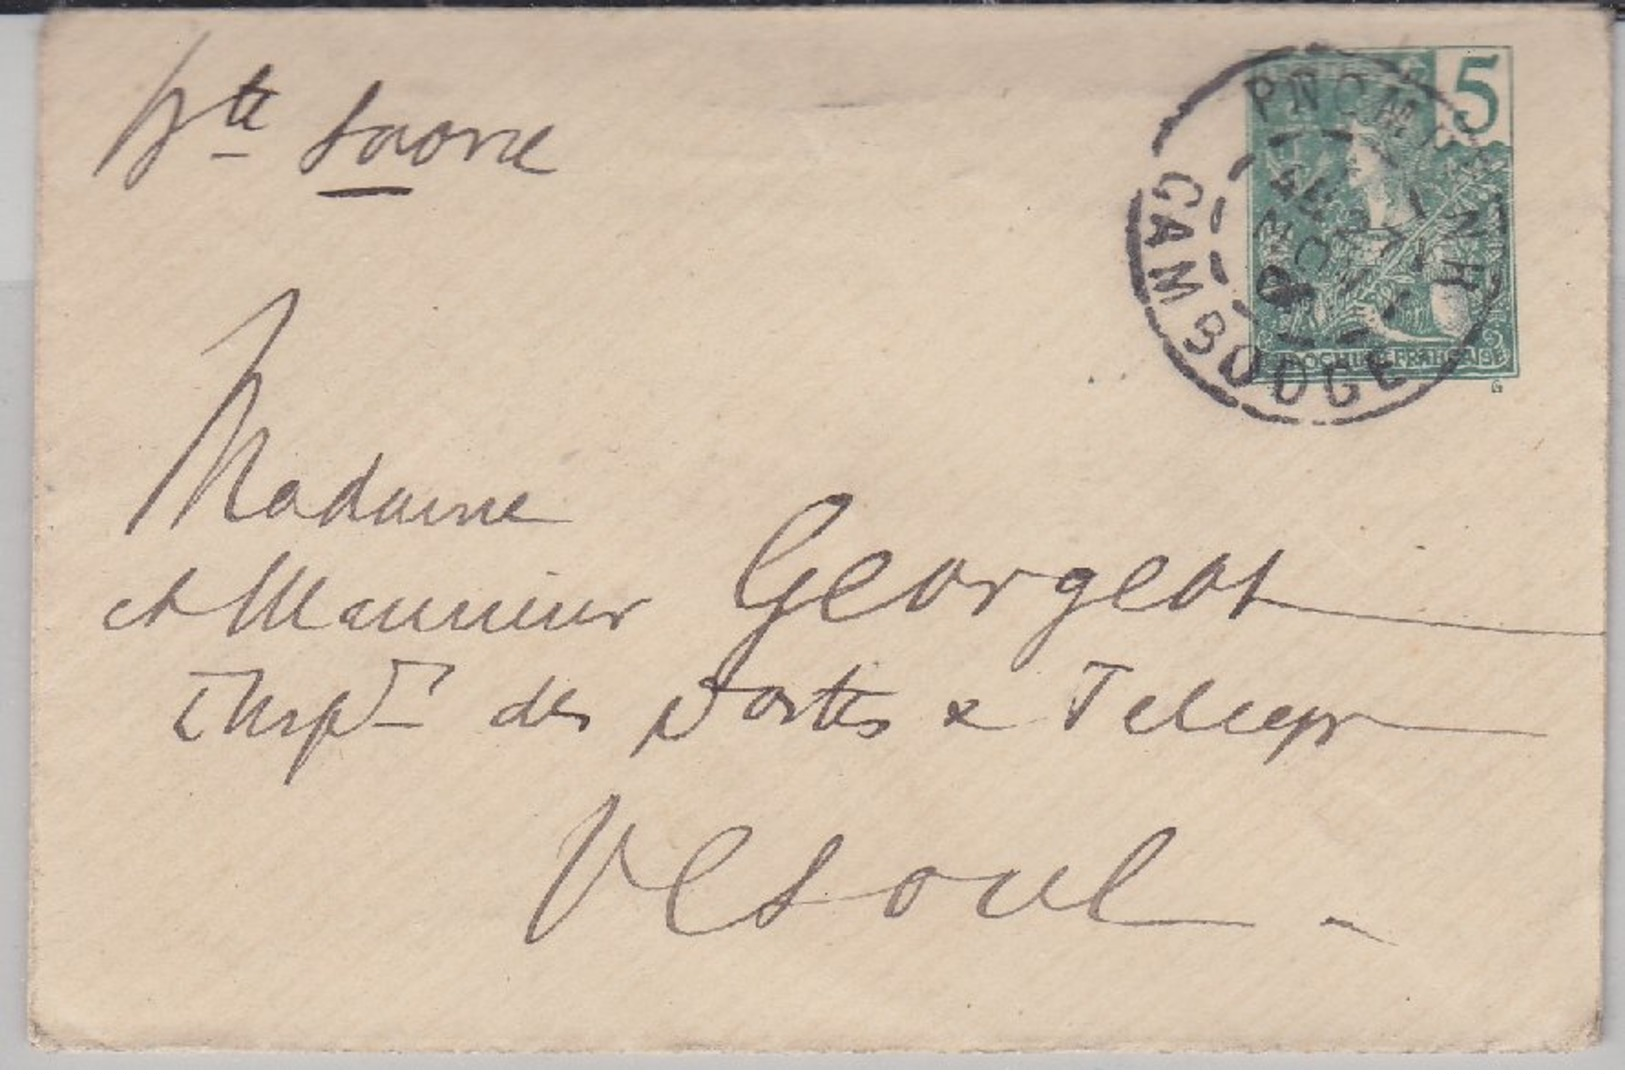 Hte Saone
5
PNOM-PENH
27
NOV
CAMBODGE
INDOCHINE FRANÇAISE
G
Madame
et Monsieur Georgeot
Inspr des Postes & Telegr
Vesoul -